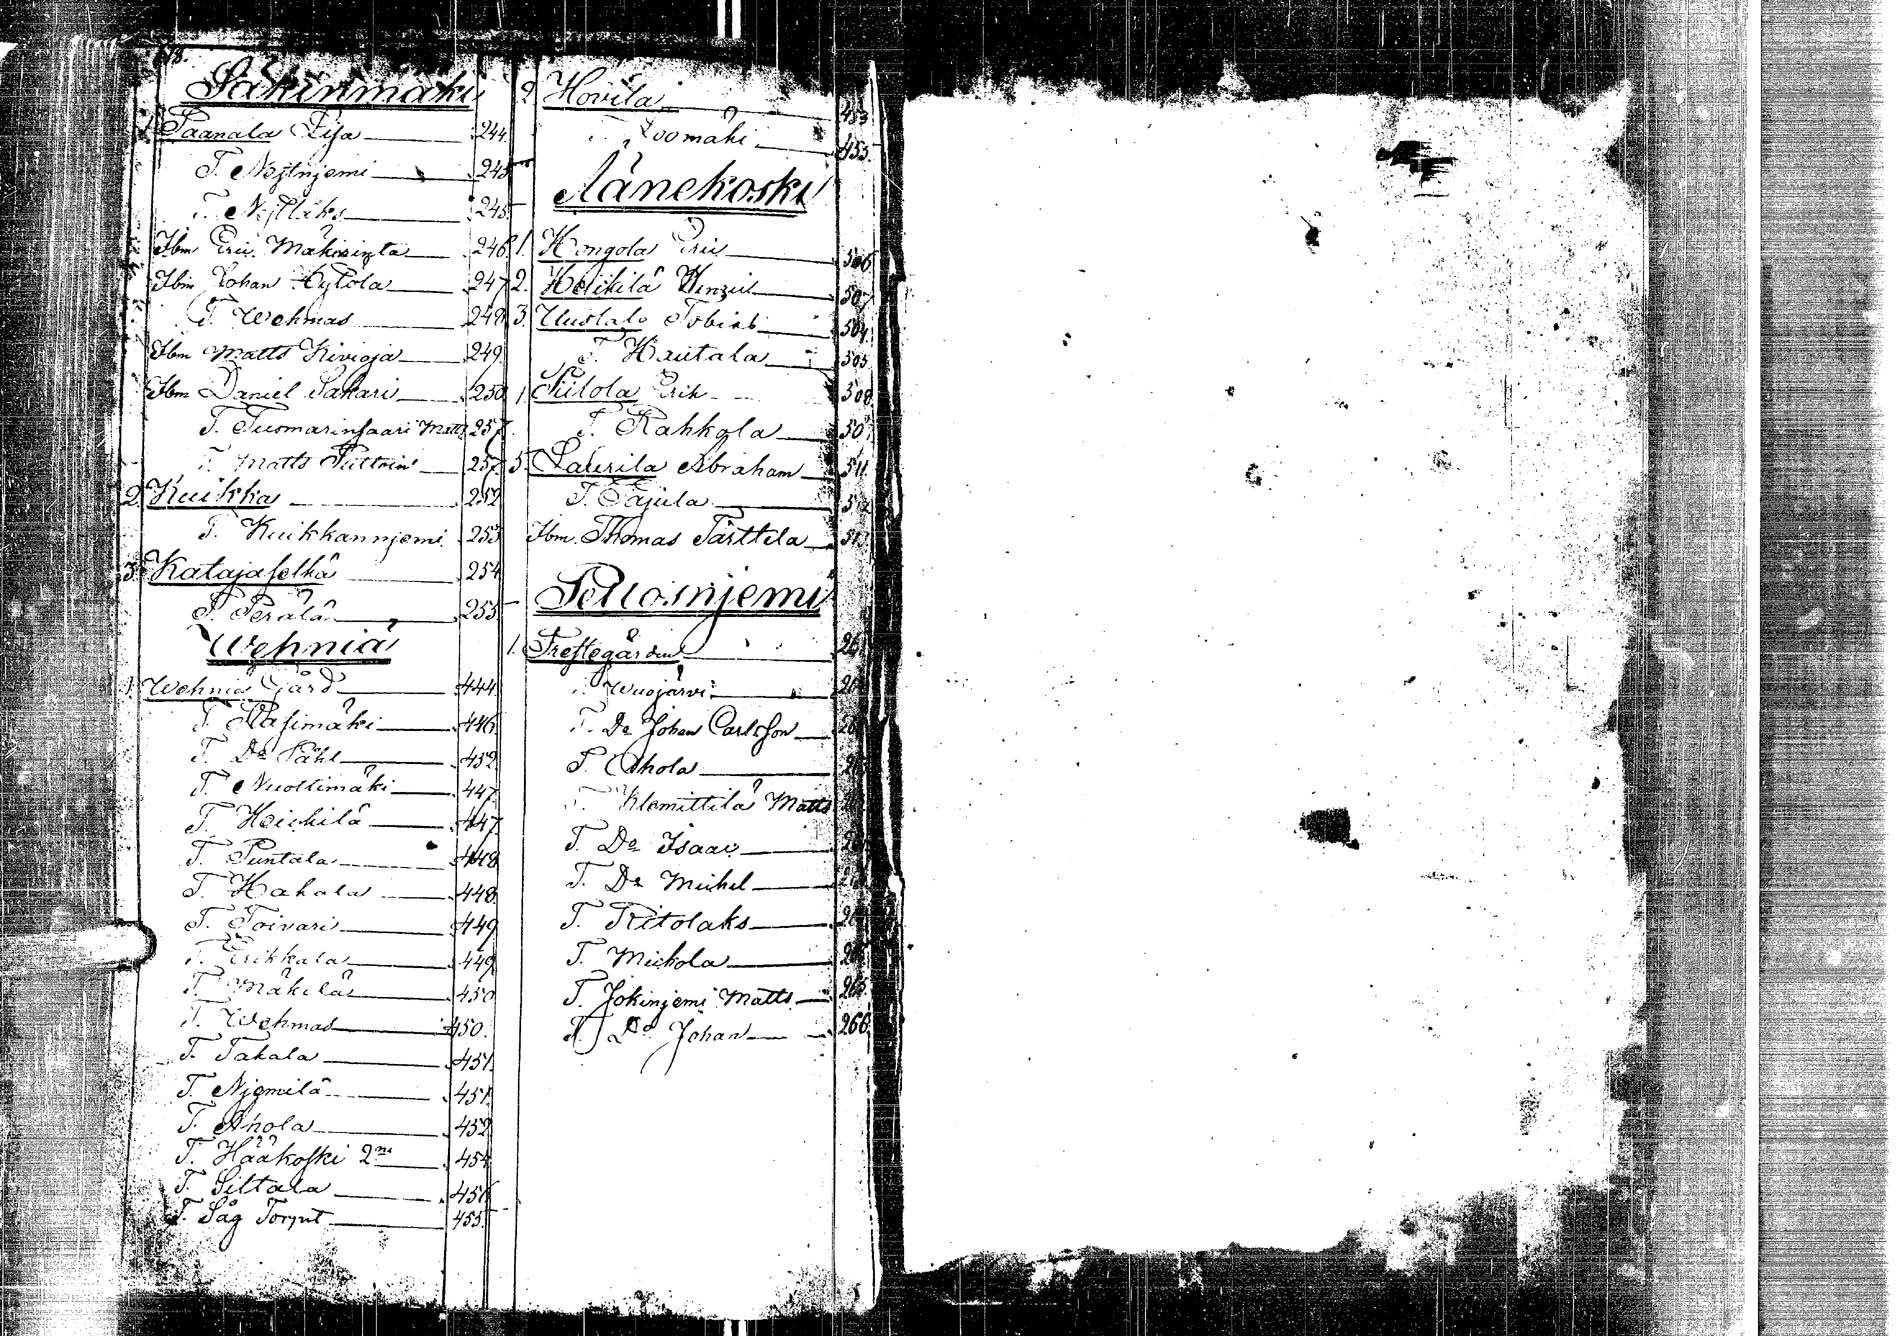 618.
Säkinmäki
1. Paanala Lija 244.
T. Nejtnjemi 245
T. Nejtläks 245
Ibm Eric Mäkirinta 246
Ibm Johan Kylölä 247
T. Wehmas 248
Ibm Matts Kivioja 249
Ibm Daniel Sakari 250
T. Tuomarinsaari Matts 257
T. Matts Püttoin 257
2. Kuikka 252
T. Kuikkannjemi 253
3. Katajaselkä 254
T. Perälä 255
Wehniä
1. Wehniä Gård 444
T. Hasimäki 446
T. Do Påhl 452
T. Nuottimäki 447
T. Heickilä 447
T. Puntala 448
T. Hakala 448
T. Toivari 449
T. Erikkala 449
T. Mäkelä 450
T. Wehmas 450.
T. Takala 451.
T. Njemilä 451
T. Ahola 452
T. Hääkoski 2ne 454
T. Siltala 456
T. Såg Torpet 455
2 Hovila 453
T. Loomäki 455
Äänekoski
1. Hongola Eric 506
2. Heikilä Henric 507
3. Uustalo Tobias 504
T. Hautala 505
Piilola Erik 508
T. Rahkola 50
5. Laurila Abraham 511
T. Pajula 512
Ibm. Thomas Tärttilä 51
Pellosnjemi
1. Prestegården 26
T. Wuojärvi
T. Do Johan Carlsson
T. Ahola
T. Klemittilä Matts
T. Do Isaac
T. Do Michel
T. Ritolaks
T. Mickola
T. Jokinjemi Matts 265
T. Do Johan 266